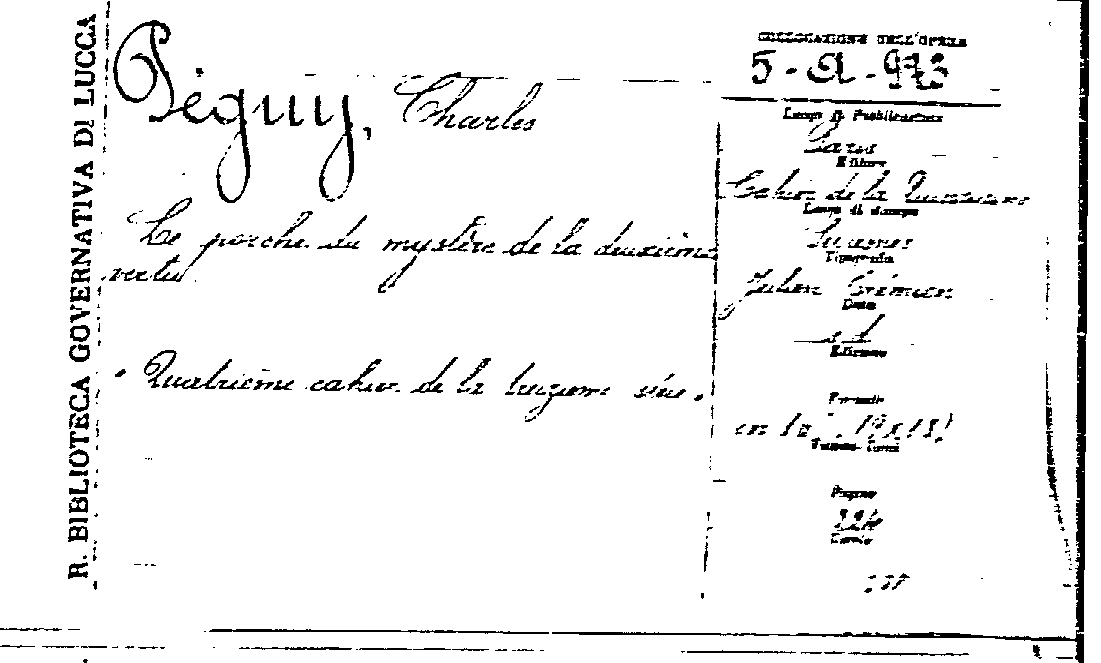 R. BIBLIOTECA GOVERNATIVA DI LUCCA
Péguy, Charles
Le porche du mystère de la deuxième
vertu
"Quatrième cahier de la treizième série"
COLLOCAZIONE DELL'OPERA
5-A-973
Luogo di Pubblicazione
Paris
Editore
Cahiers de la Quinzaine
Luogo di stampa
Suresnes
Tipografia
Julien Crémieu
Data
s.d.
Edizione
Formato
in
Pagine
224